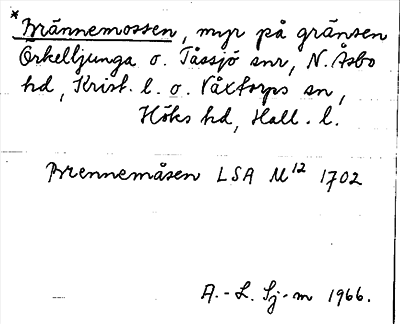 *Brännemossen, myr på gränsen
Örkelljunga o. Tåssjö snr, N. Åsbo
hd, Krist. l. o. Våxtorps sn,
Höks hd, Hall. l.
Brennemåsen LSA M12 1702
A.-L. Sj-m 1966.